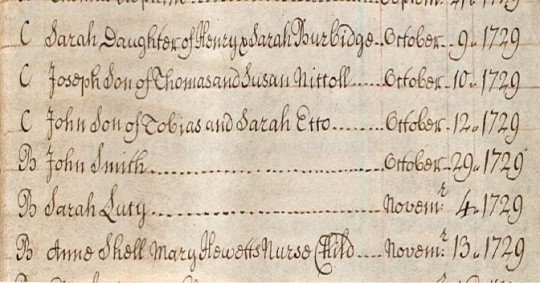 C Sarah Daughter of Henry & Sarah Burbidge.. October. 9. 1729
C Joseph Son of Thomas and Susan Nittoll..... October. 10. 1729
C John Son of Tobias and Sarah Etto....... October. 12. 1729
B John Smith........................ October. 29. 1729
B Sarah Luty........................ Novem:r 4. 1729
B Anne Shell Mary Hewetts Nurse Child.... Novem:r 13. 1729